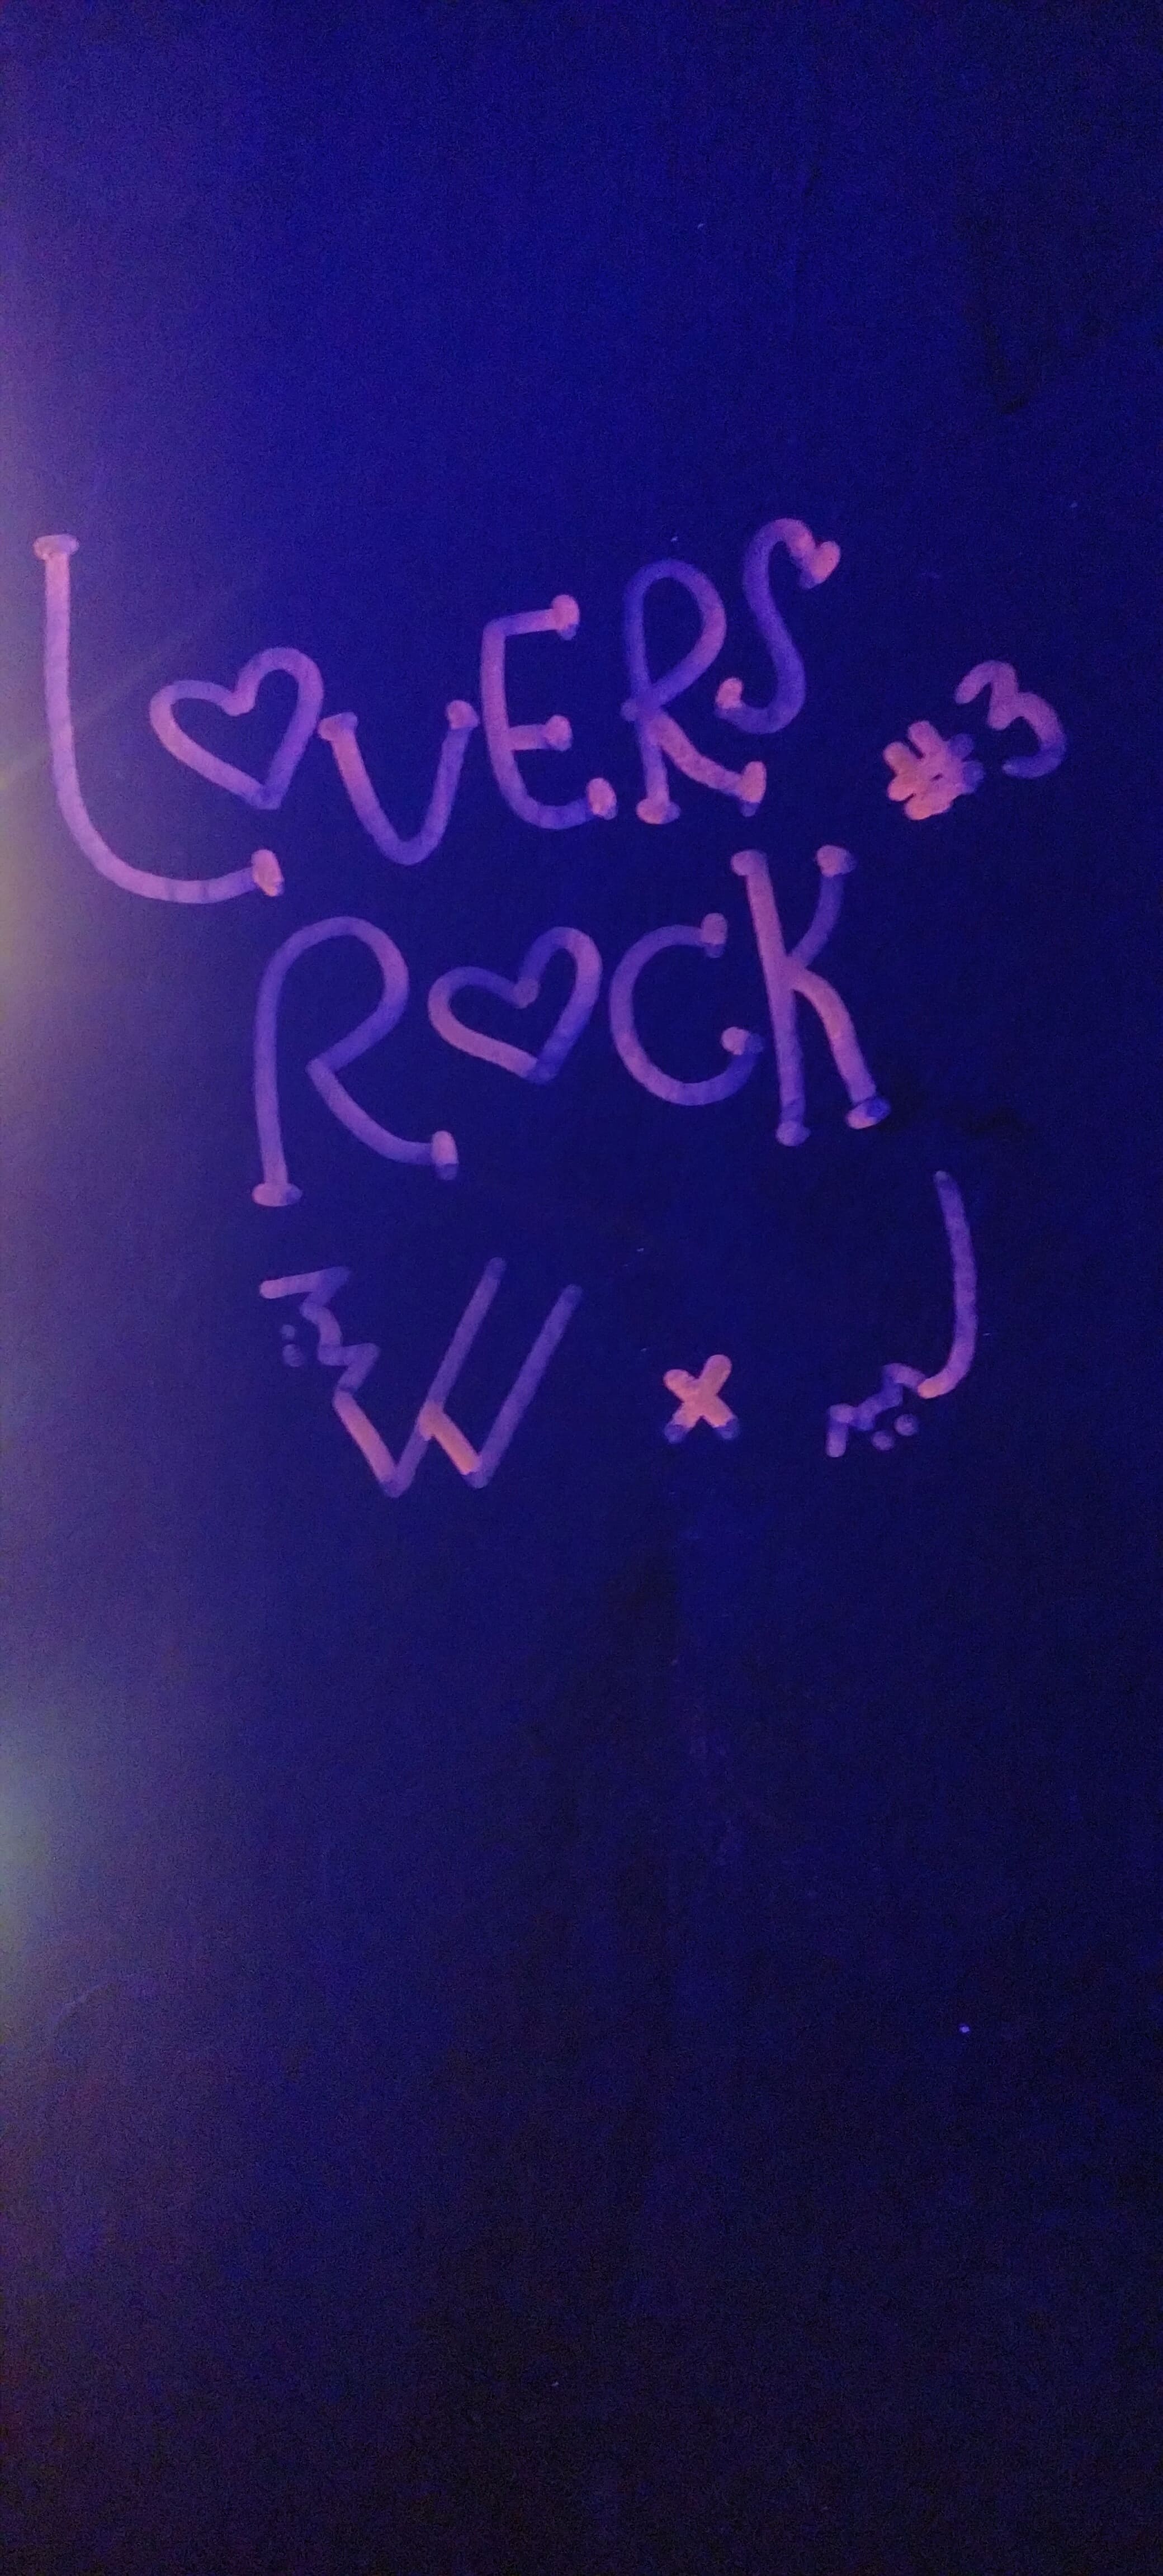 LOVERS #3
ROCK
W x J